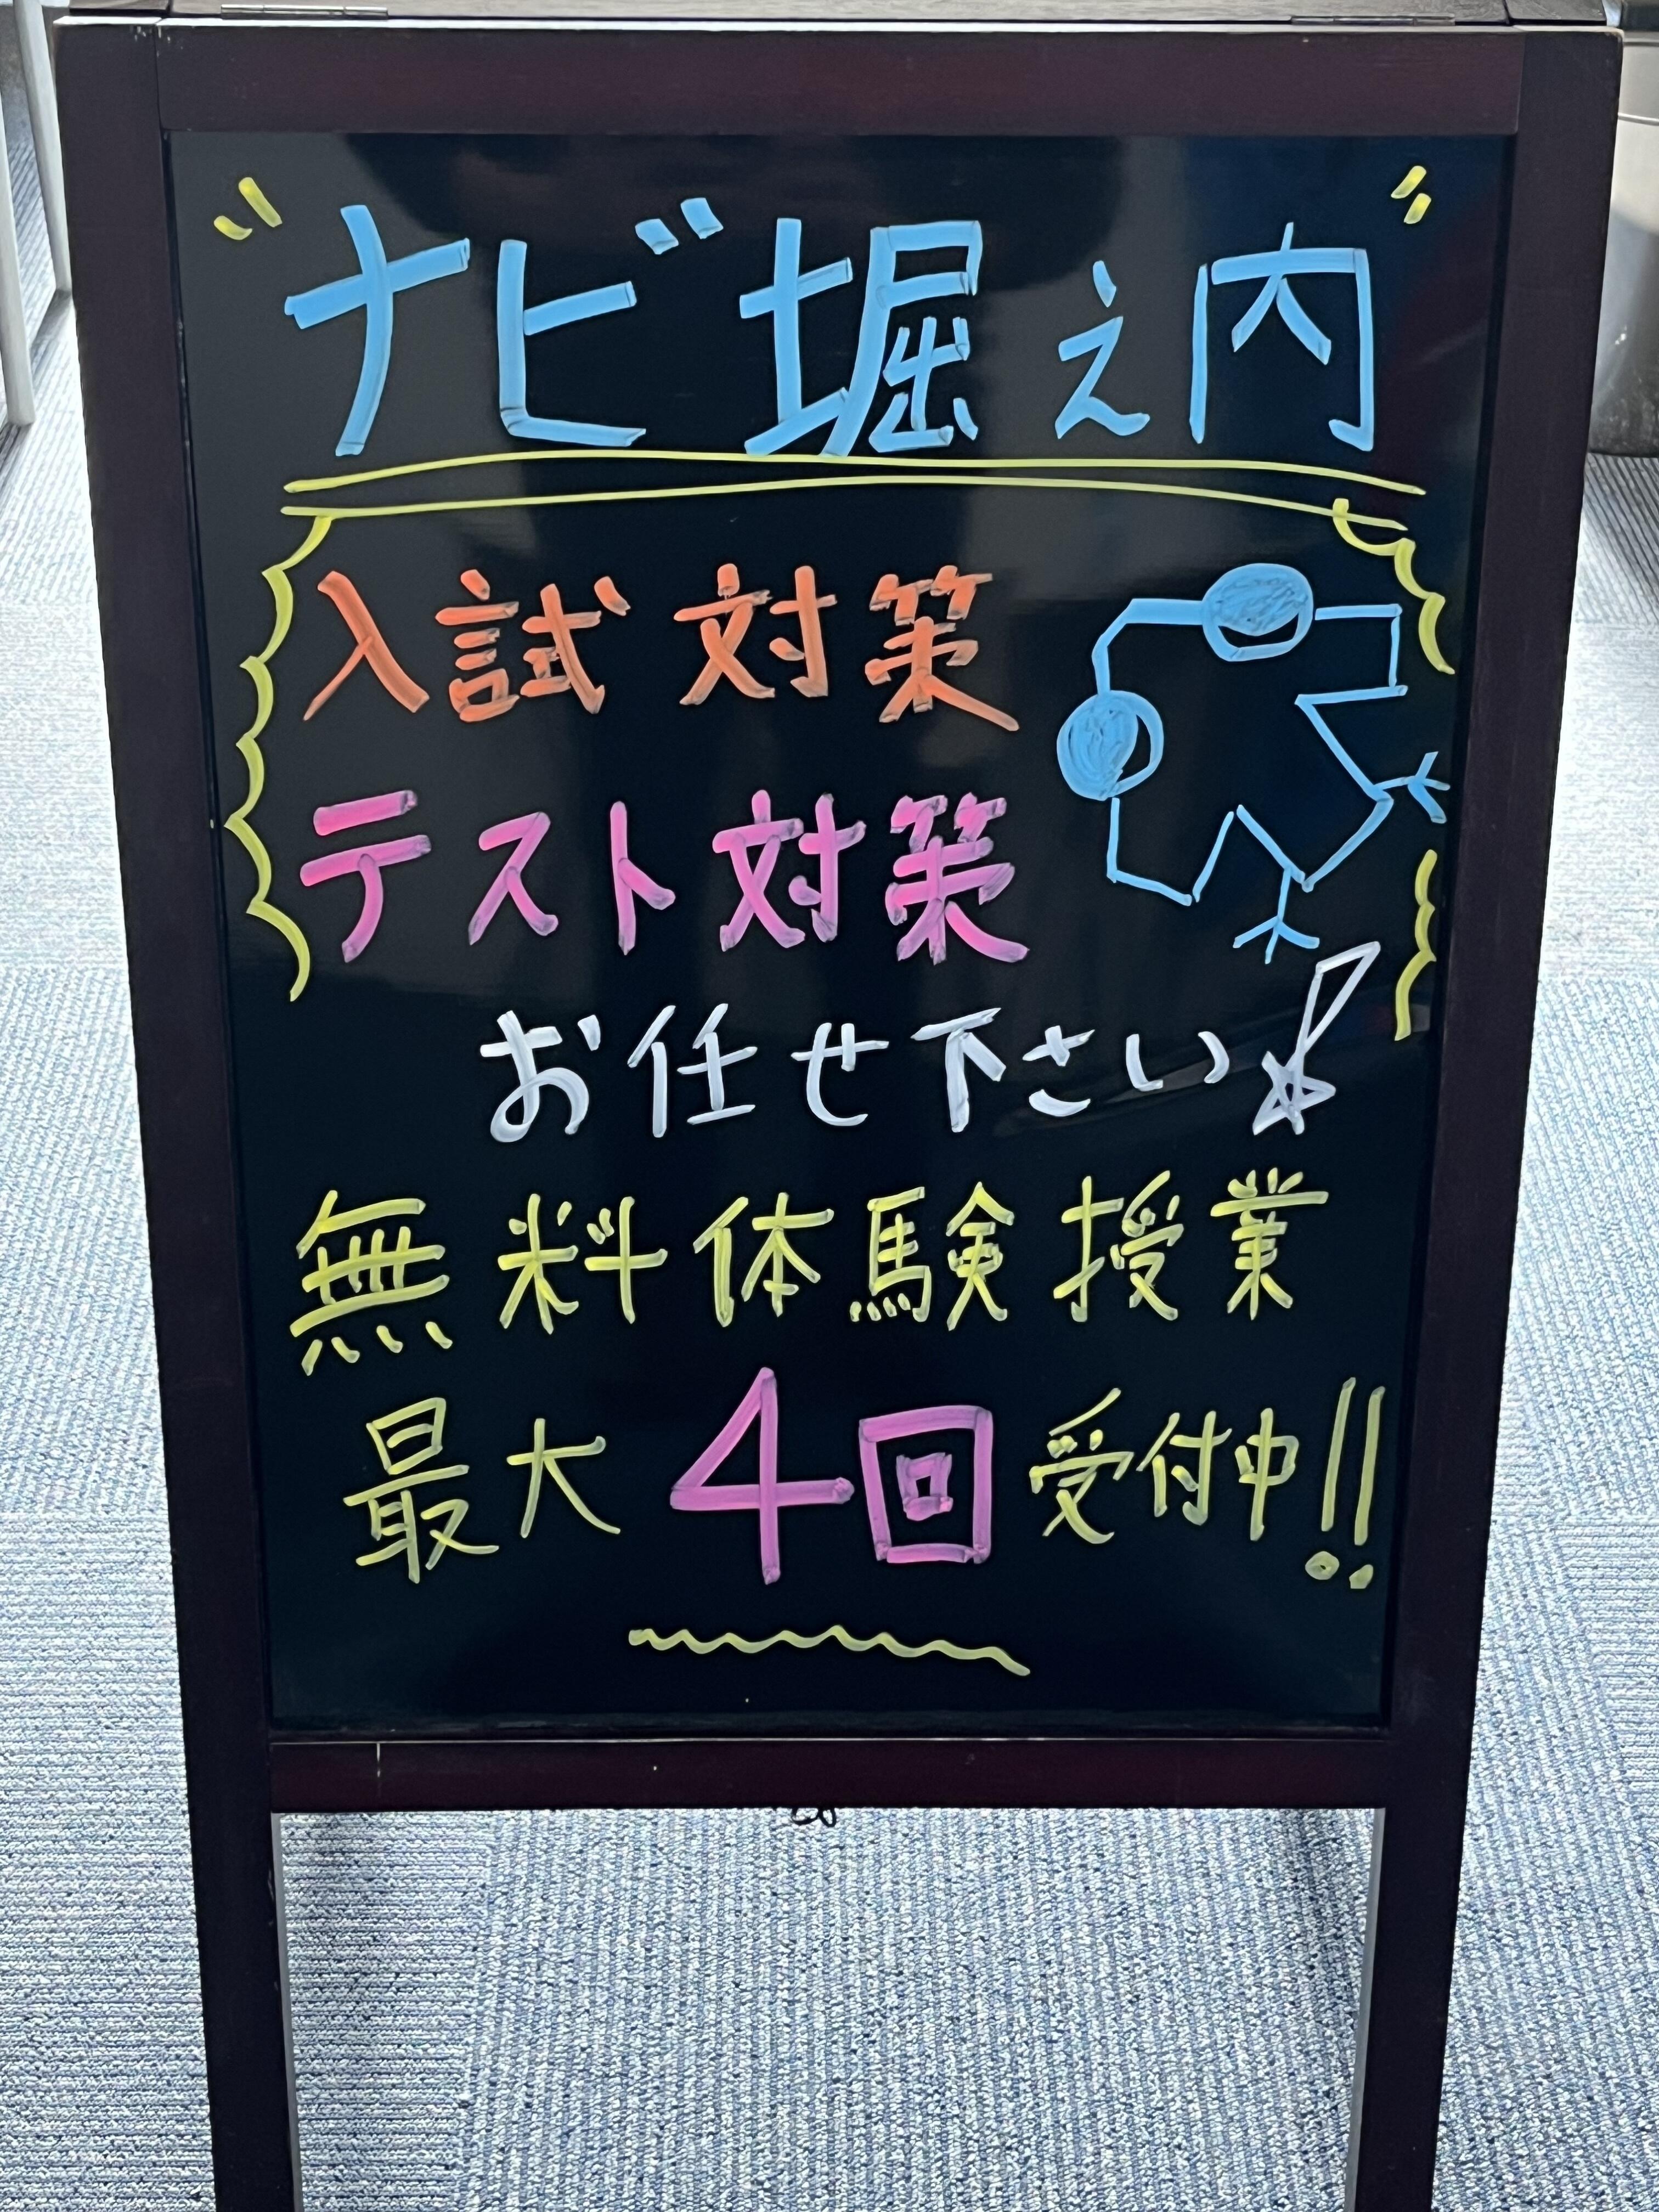 "ナビ堀之内"
入試対策
テスト対策
お任せ下さい!
無料体験授業
最大4回受付中!!